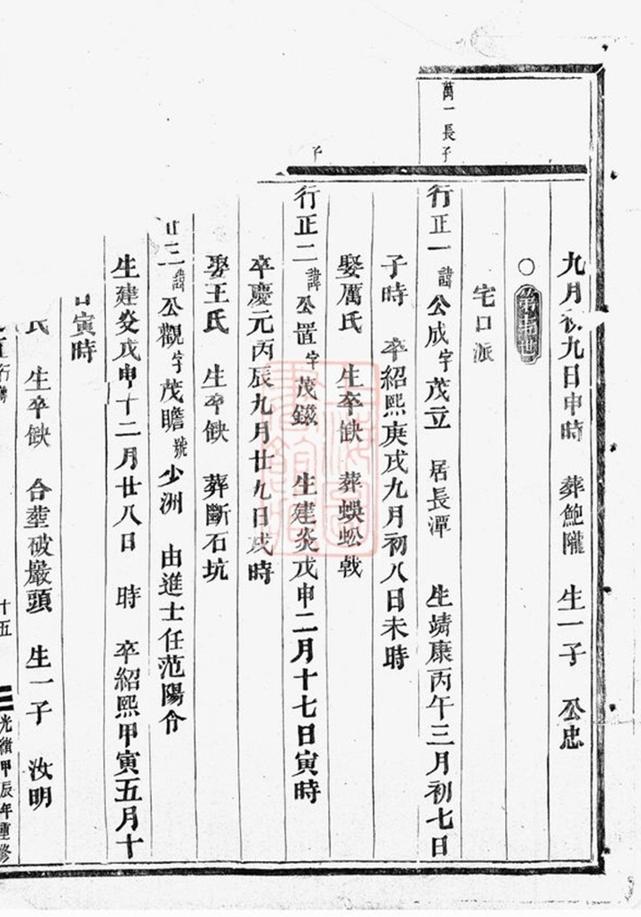 九月初九日申時 葬鮑隴 生一子 公忠
○ 第十世
宅口派
萬一長子
行正一 諱公成字茂立 居長潭 生靖康丙午三月初七日
子時 卒紹熙庚戌九月初八日未時
娶厲氏 生卒缺 葬蜈蚣戟
行正二 諱公置字茂鐵 生建炎戊申二月十七日寅時
卒慶元丙辰九月廿九日戌時
娶王氏 生卒缺 葬斷石坑
正三 諱公觀字茂瞻號少洲 由進士任范陽令
生建炎戊申十二月廿八日 時 卒紹熙甲寅五月十
日寅時
氏 生卒缺 合葬破巖頭 生一子 汝明
十五
光緒甲辰年重修
上海圖書館藏